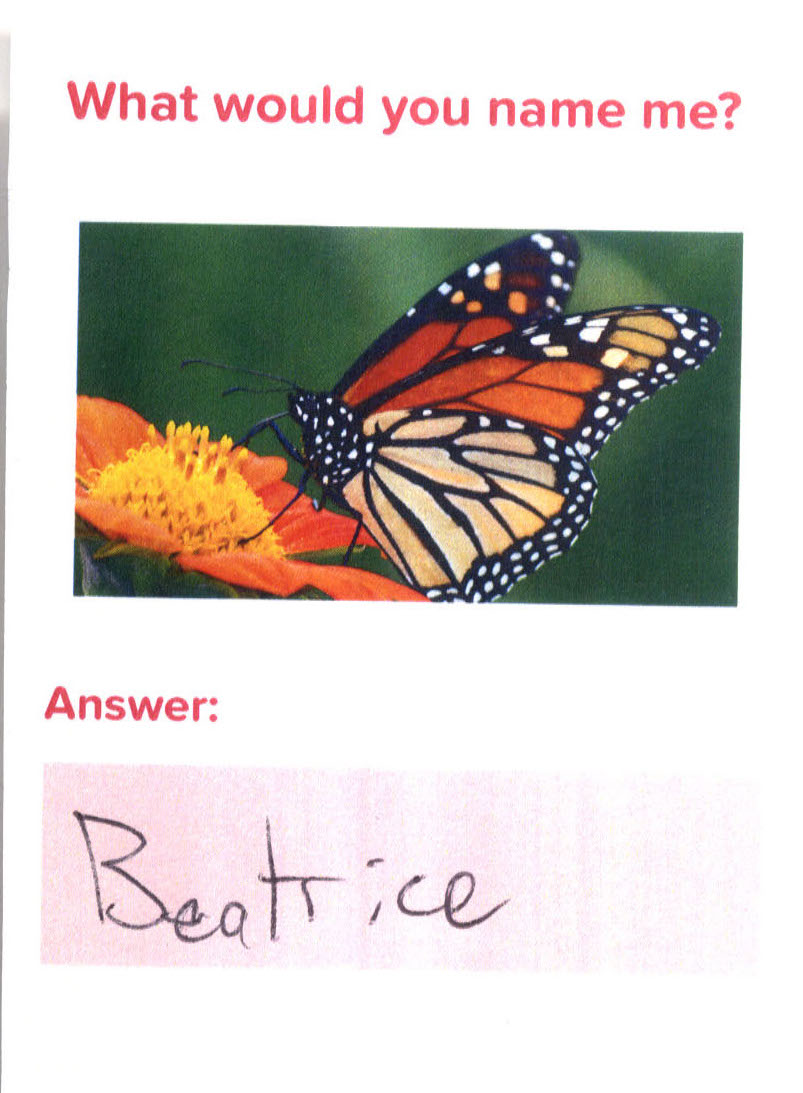 What would you name me?
Answer:
Beatrice